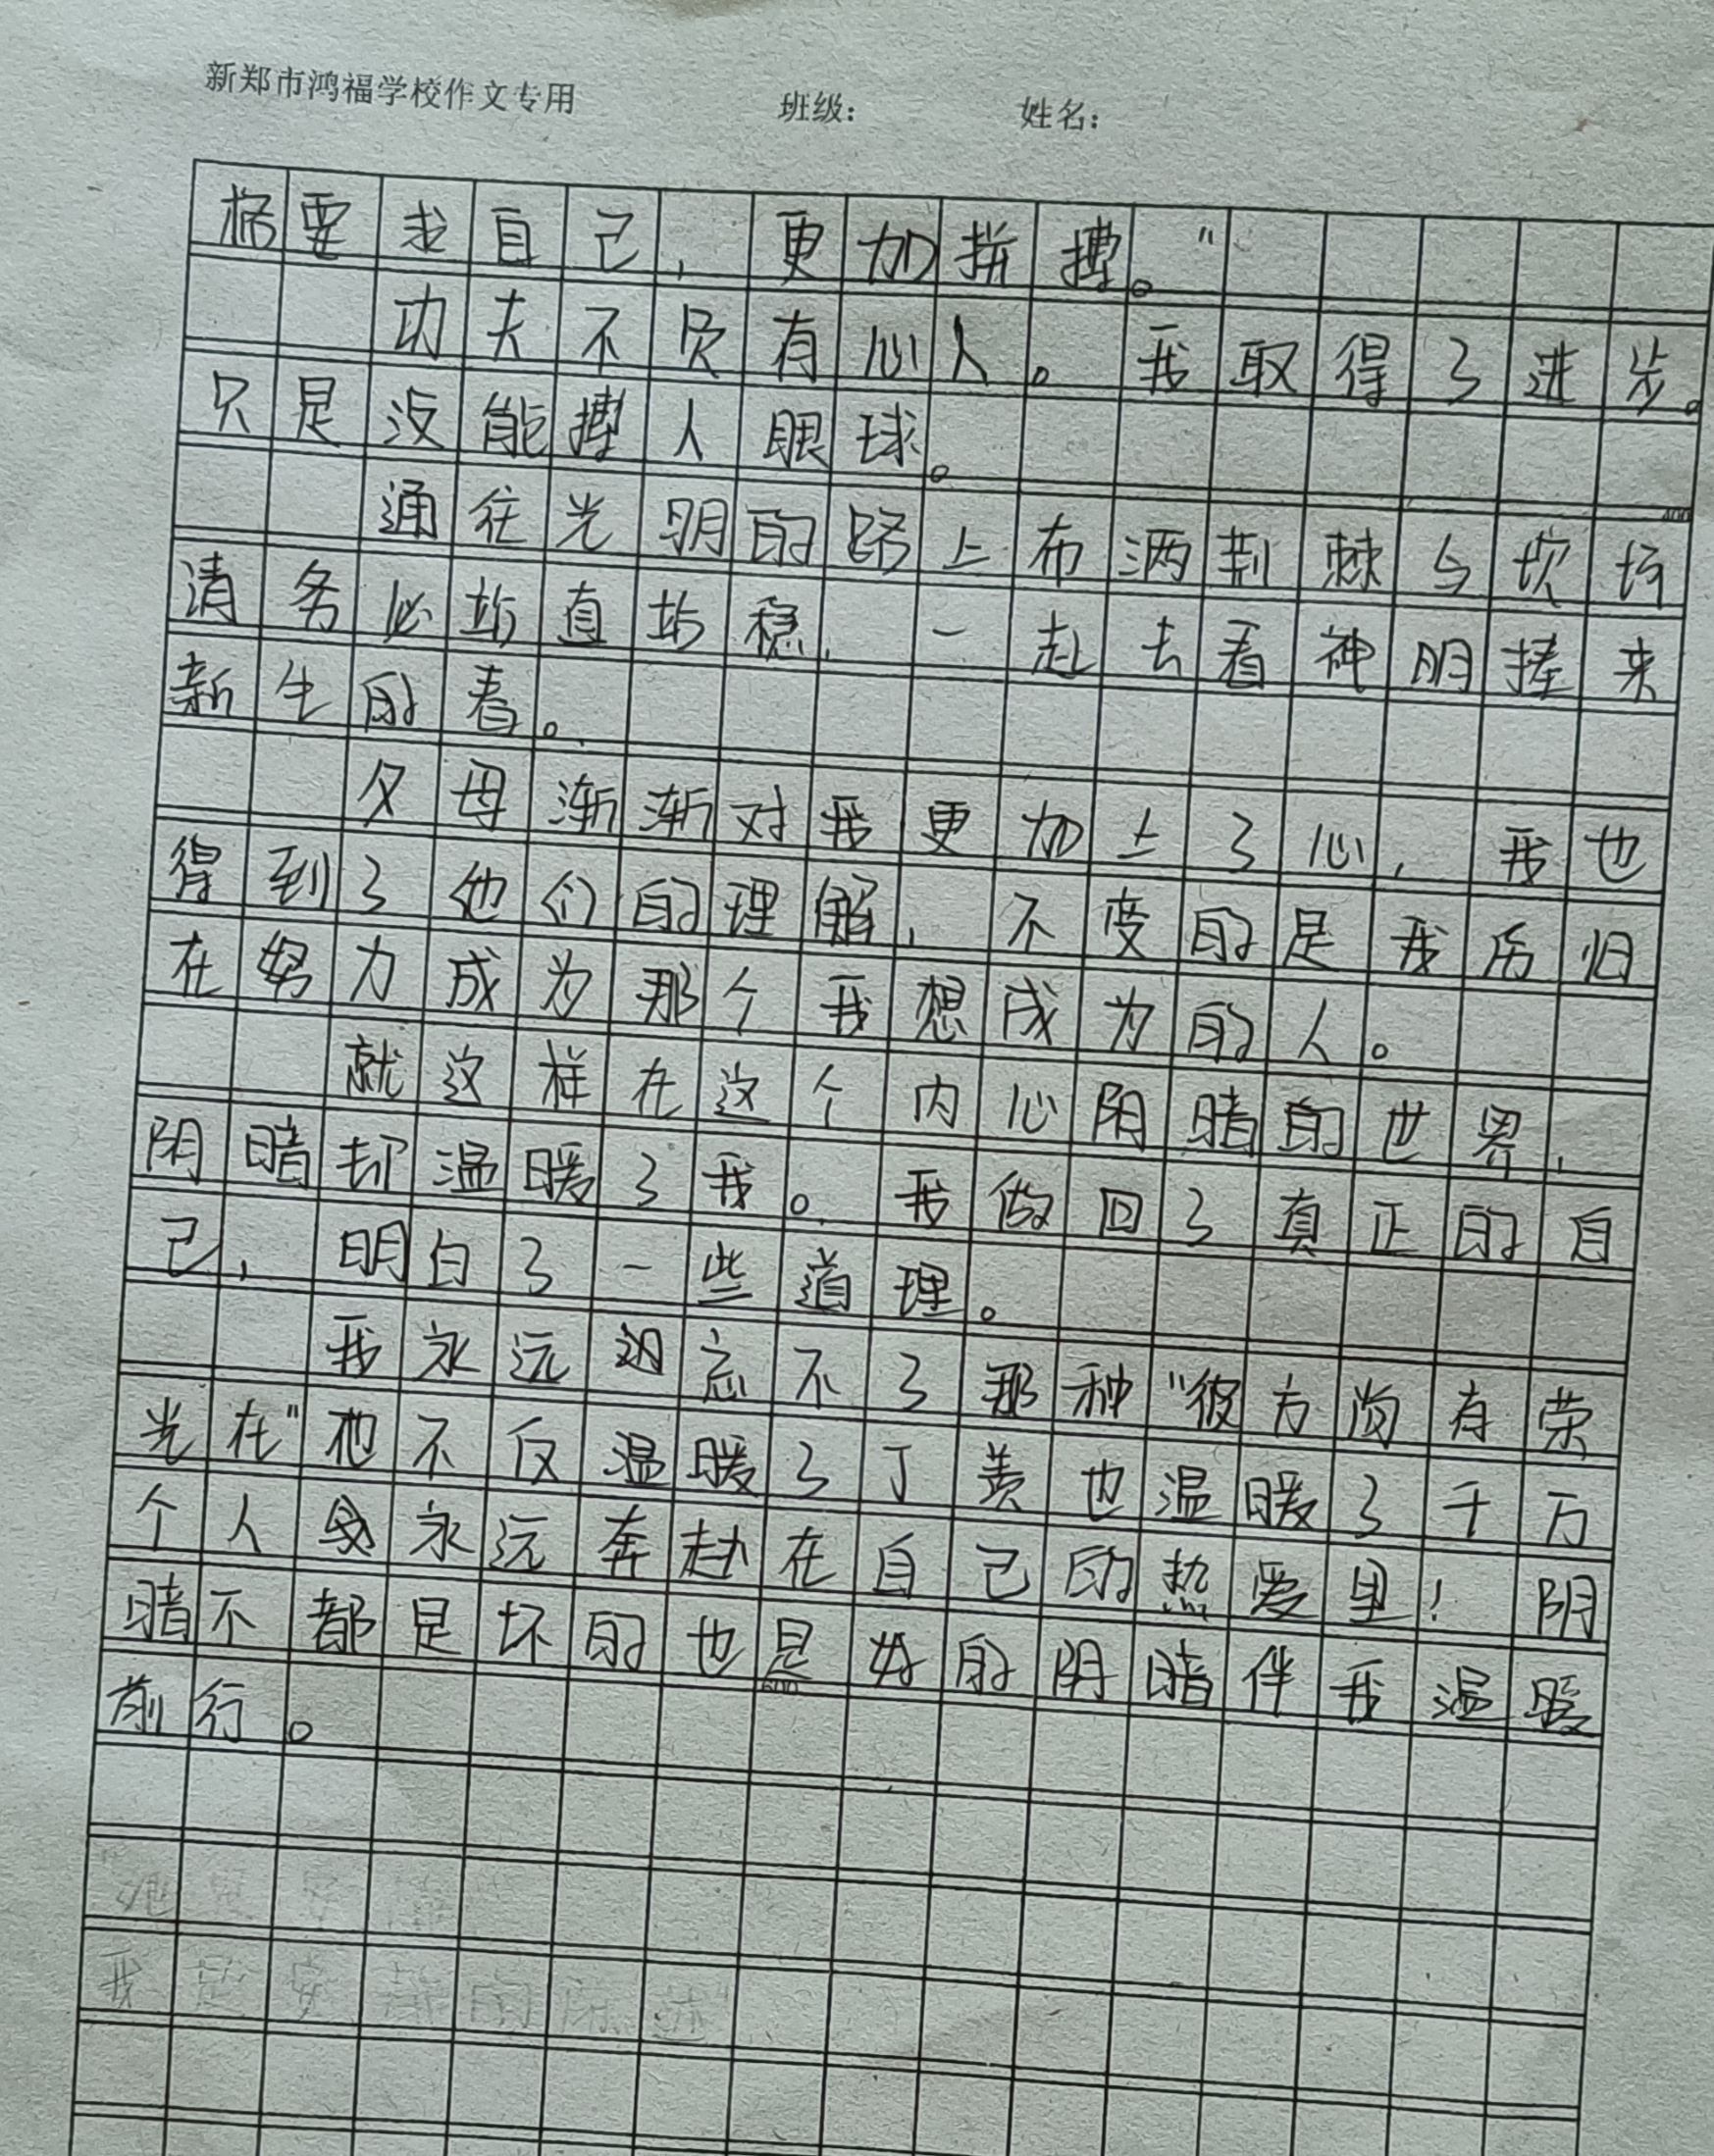 新郑市鸿福学校作文专用 班级: 姓名:
格要求自己,更加拼搏。"
功夫不负有心人。我取得了进步。
只是没能搏人眼球。
400
通往光明的路上布满荆棘与坎坷
请务必站直站稳,一起去看神明捧来
新生的春。
父母渐渐对我更加上了心,我也
得到了他们的理解,不变的是我历旧
在努力成为那个我想成为的人。
就这样在这个内心阴暗的世界,
阴暗却温暖了我。我做回了真正的自
己,明白了一些道理。
我永远忘不了那种"彼方尚有荣
光在"他不仅温暖了丁真也温暖了千万
个人 永远奔赴在自己的热爱里!阴
暗不都是坏的也是好的阴暗伴我温暖
600
前行。
我是安静的陈述